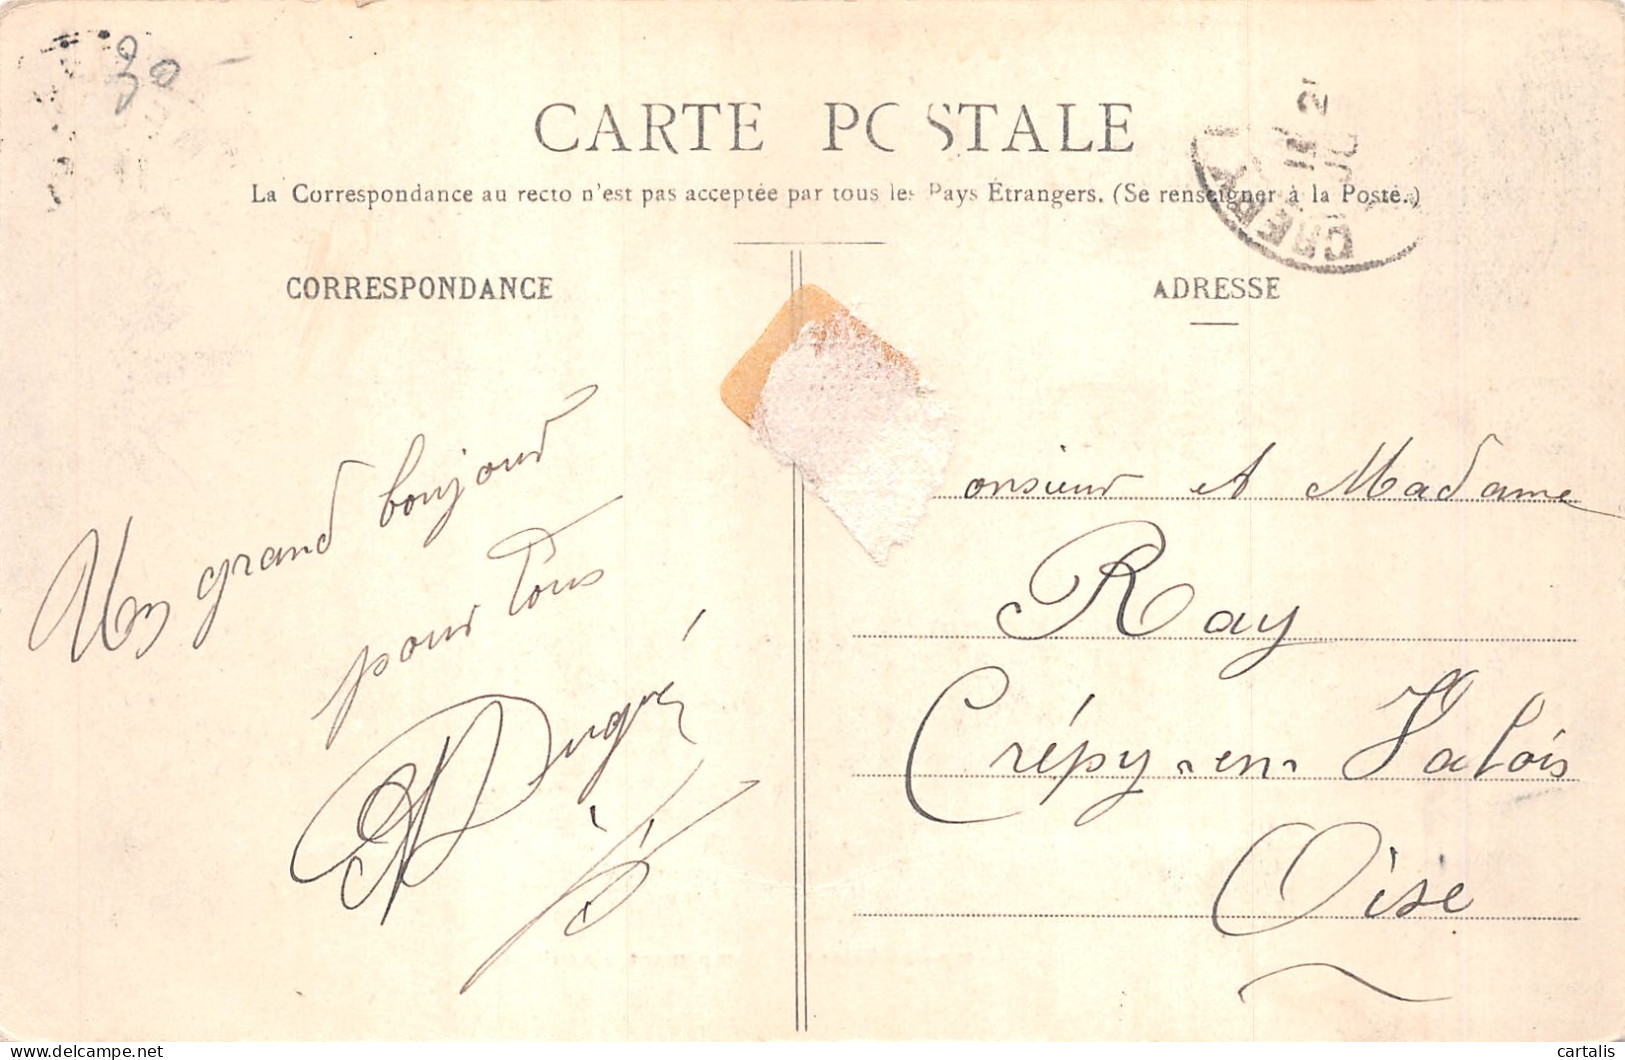 30
CARTE POSTALE
La Correspondance au recto n'est pas acceptée par tous les Pays Étrangers. (Se renseigner à la Poste.)
CORRESPONDANCE
ADRESSE
Un grand bonjour
pour tous
onsieur et Madame
Ray
Crépy-en-Valois
Oise
cartalis